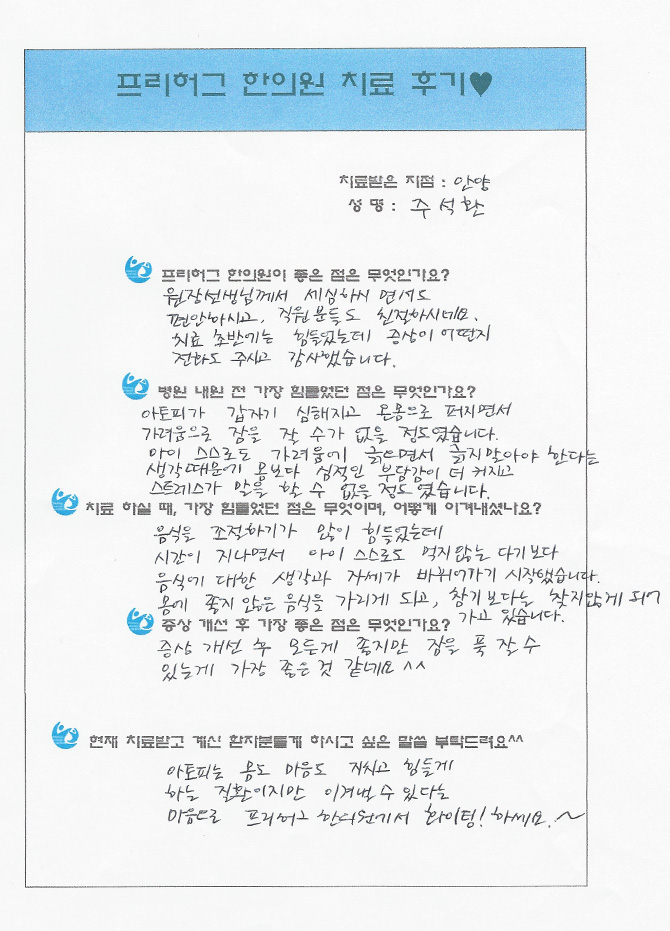 프리허그 한의원 치료 후기♥
치료받은 지점 : 안양
성 명 : 주석환
프리허그 한의원이 좋은 점은 무엇인가요?
원장선생님께서 세심하시 면서도
편안하시고, 직원분들도 친절하시네요.
치료 초반에는 힘들었는데 증상이 어떤지
전화도 주시고 감사했습니다.
병원 내원 전 가장 힘들었던 점은 무엇인가요?
아토피가 갑자기 심해지고 온몸으로 퍼지면서
가려움으로 잠을 잘 수가 없을 정도였습니다.
아이 스스로도 가려움에 긁으면서 긁지말아야 한다는
생각때문에 몸보다 심적인 부담감이 더 커지고
스트레스가 말을 할 수 없을 정도 였습니다.
치료 하실 때, 가장 힘들었던 점은 무엇이며, 어떻게 이겨내셨나요?
음식을 조절하기가 많이 힘들었는데
시간이 지나면서 아이 스스로도 먹지않는 다기보다
음식에 대한 생각과 자세가 바뀌어가기 시작했습니다.
몸에 좋지 않은 음식을 가리게 되고, 참기보다는 찾지않게 되어
가고 있습니다.
증상 개선 후 가장 좋은 점은 무엇인가요?
증상 개선 후 모든게 좋지만 잠을 푹 잘 수
있는게 가장 좋은것 같네요 ^^
현재 치료받고 계신 환자분들게 하시고 싶은 말씀 부탁드려요^^
아토피는 몸도 마음도 지치고 힘들게
하는 질환이지만 이겨낼 수 있다는
마음으로 프리허그 한의원에서 화이팅! 하세요.~